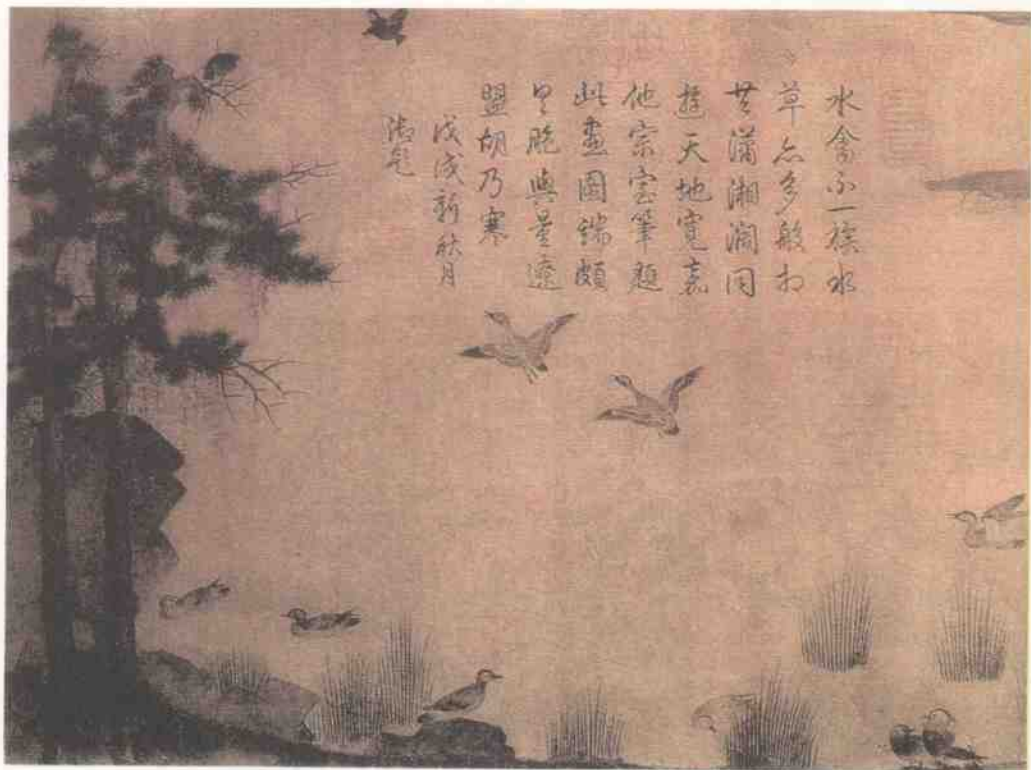 水禽不一族水
草亦多般相
共瀟湘濶同
天地寬嘉
他宗室筆題
此畫圖端頗
與
盟胡乃寒
戊戌新秋月
御題